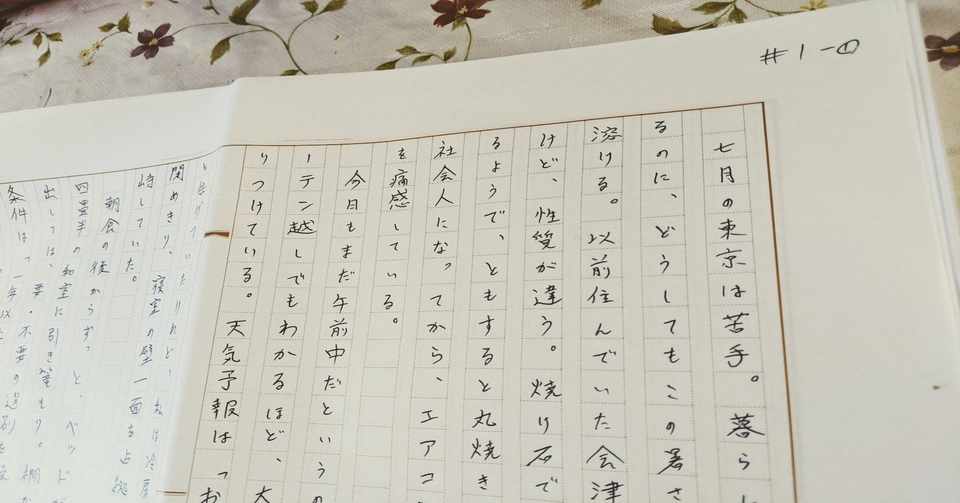 #1-①
七月の東京は苦手。暮らし
るのに、どうしてもこの暑さ
溶ける。以前住んでいた会津
けど、性質が違う。焼け石で
るようで、ともすると丸焼き
社会人になってから、エアコ
を痛感している。
今日もまだ午前中だというの
ーテン越しでもわかるほど、太
りつけている。天気予報は「お
閉めきり、寝室の壁一面を占拠
峙していた。
朝食の後からずっと、ベッド
四畳半の和室に引き篭もり。棚
出しては、要・不要の選別を
条件は「一年以上